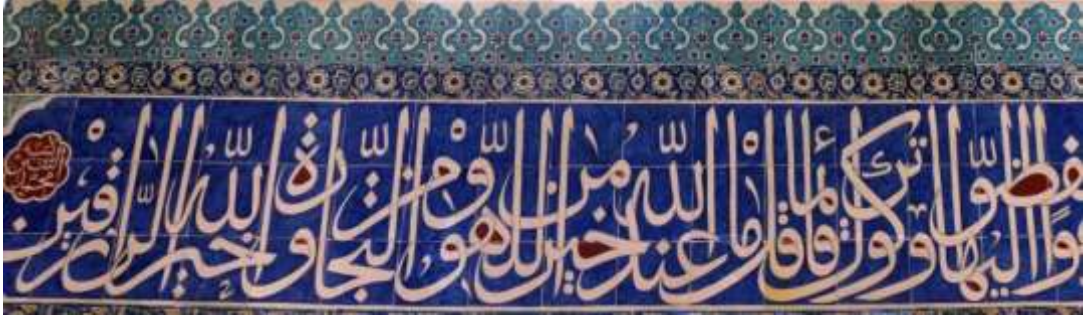 انفضوا اليها وتركوك قائما قل ما عند الله خير من اللهو ومن التجارة والله خير الرازقين